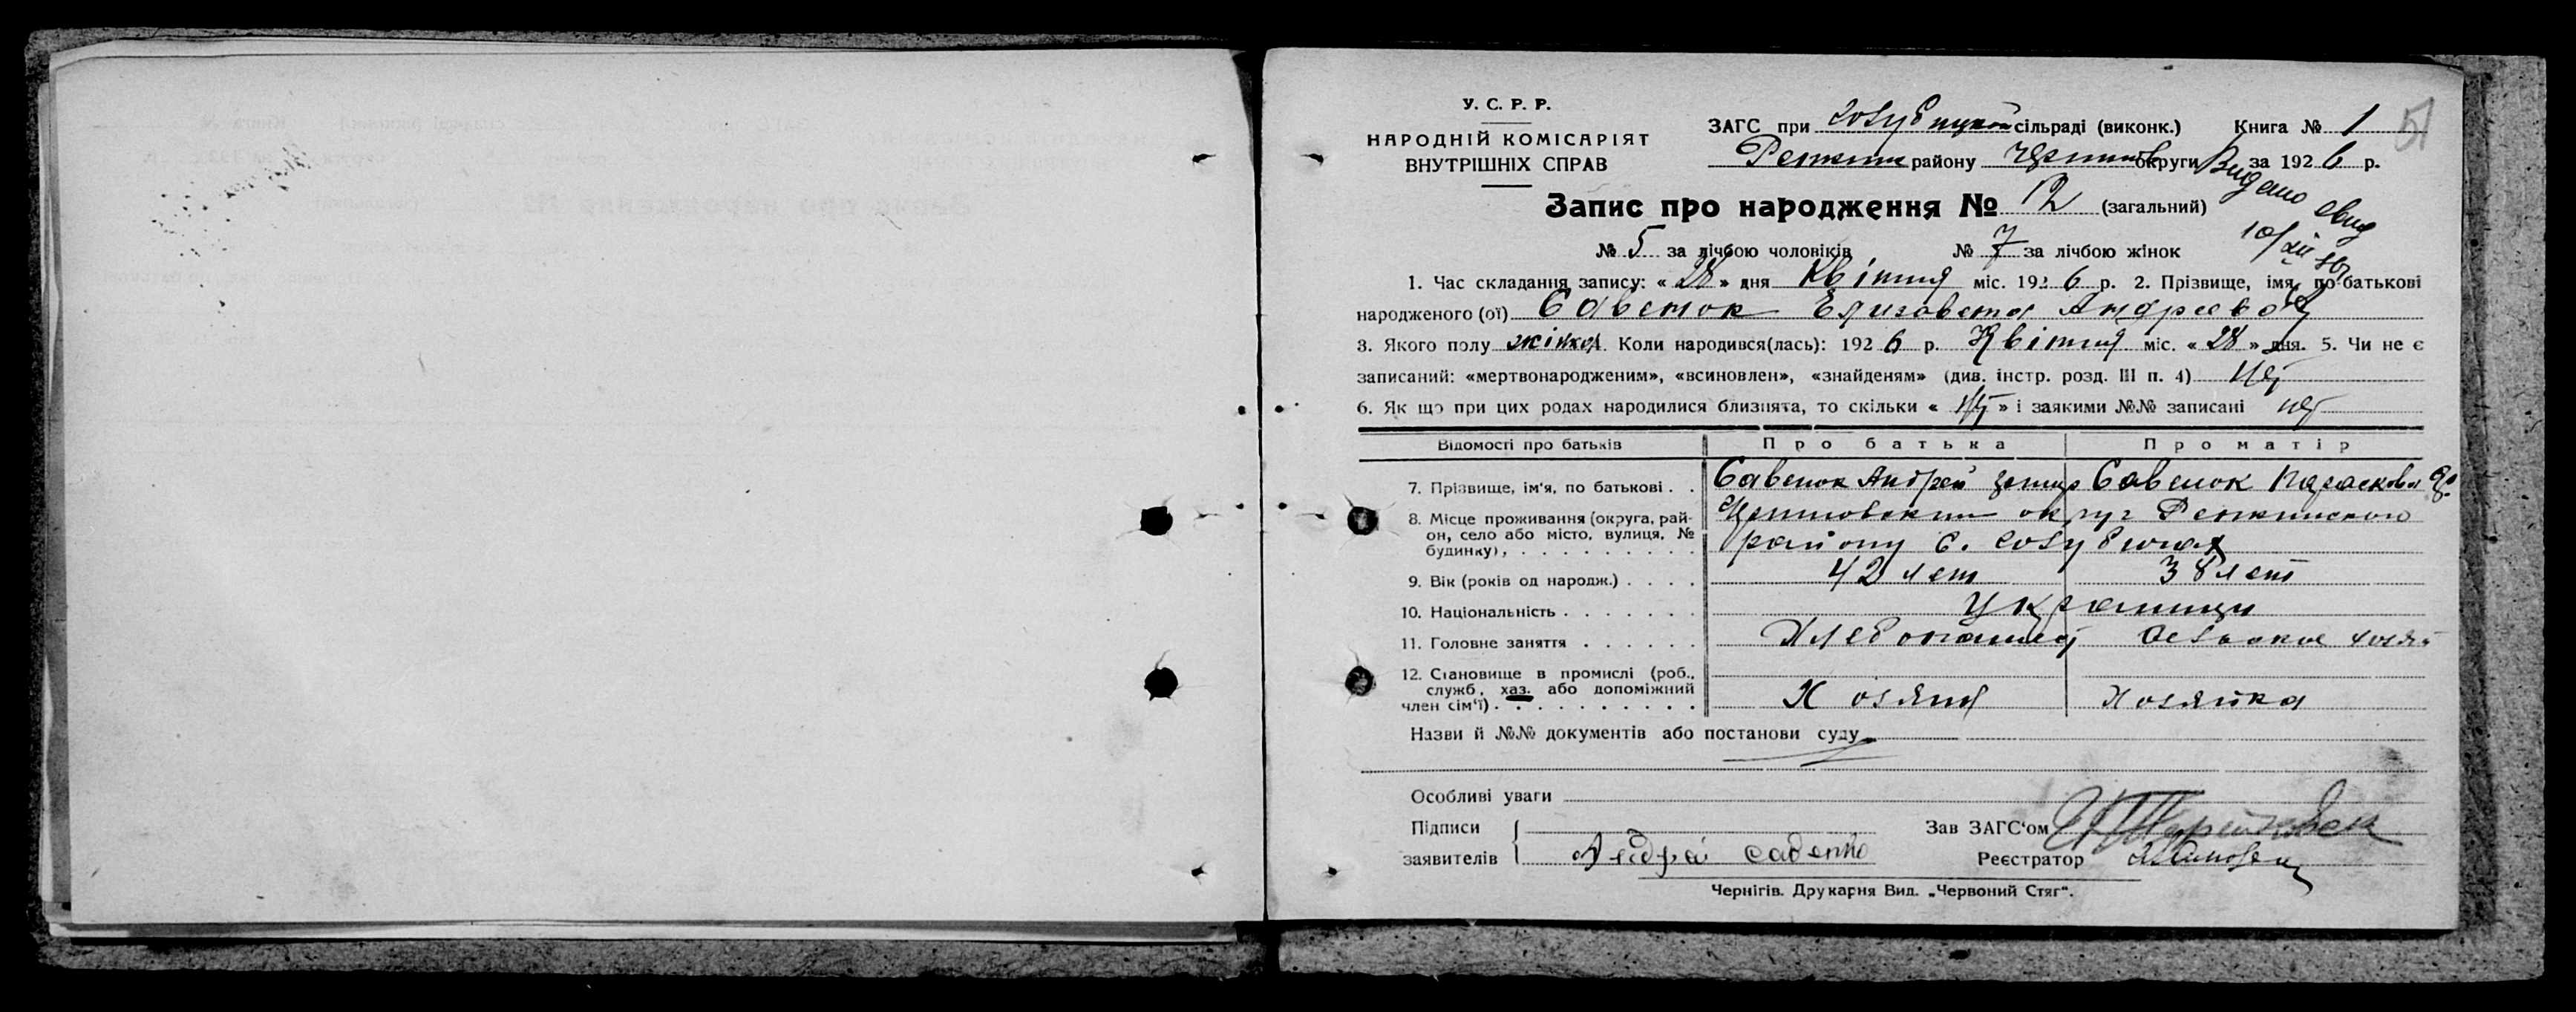 У. С. Р. Р.
НАРОДНІЙ КОМІСАРІЯТ
ВНУТРІШНІХ СПРАВ
ЗАГС при Голубицкой сільраді (виконк.) Книга № 1 51
Репкин району Чернигов округи за 1926 р.
Видано свид
10/XII 56
Запис про народження № 12 (загальний)
№ 5 за лічбою чоловіків № 7 за лічбою жінок
1. Час складання запису: « 28 » дня Квітня міс. 1926 р. 2. Прізвище, імя, по батькові
народженого (ої) Савенок Елизавета Андреева
3. Якого полу жінка. Коли народився(лась): 1926 р. Квітня міс. « 28 » дня. 5. Чи не є
записаний: «мертвонародженим», «всиновлен», «знайденям» (див. інстр. розд. III п. 4) нет
6. Як що при цих родах народилися близнята, то скільки « нет » і заякими №№ записані нет
Відомості про батьків Про батька Про матір
7. Прізвище, ім'я, по батькові . . Савенок Андрей Савенок Парасковя
8. Місце проживання (округа, рай- Черниговский округ Репкинского
он, село або місто, вулиця, № району с. Голубичах
будинку),
9. Вік (років од народж.) . . . . 42 лет 38 лет
10. Національність . . . . . . . Украинци
11. Головне заняття . . . . . . Хлебопашец Сельское хозяй
12. Становище в промислі (роб.,
служб, хаз. або допоміжний Хозяин Хозяйка
член сім'ї) . . . . . . . . . .
Назви й №№ документів або постанови суду
Особливі уваги
Підписи Зав ЗАГС'ом
заявителів Андрей Савенко Реєстратор
Чернігів. Друкарня Вид. „Червоний Стяг".